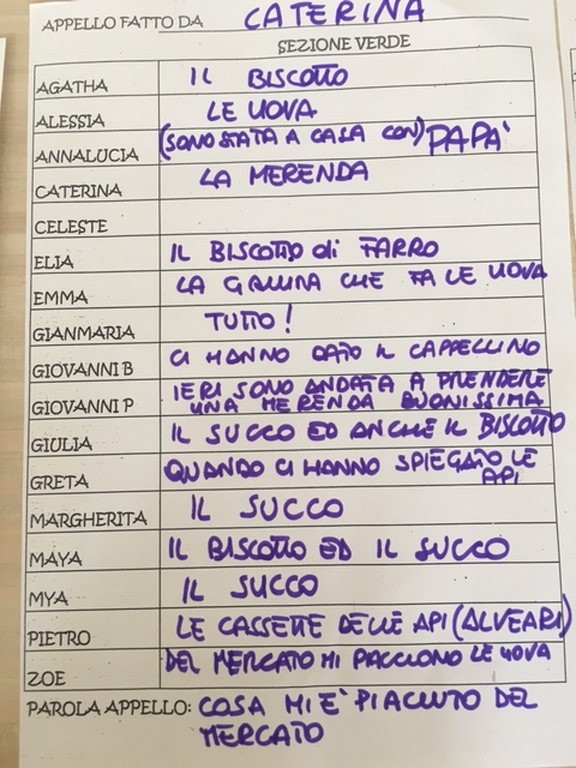 APPELLO FATTO DA CATERINA
SEZIONE VERDE
AGATHA IL BISCOTTO
ALESSIA LE UOVA
ANNALUCIA (SONO STATA A CASA CON) PAPA'
CATERINA LA MERENDA
CELESTE
ELIA IL BISCOTTO di FARRO
EMMA LA GALLINA CHE FA LE UOVA
GIANMARIA TUTTO!
GIOVANNI B CI HANNO DATO IL CAPPELLINO
GIOVANNI P IERI SONO ANDATA A PRENDERE
UNA MERENDA BUONISSIMA
GIULIA IL SUCCO ED ANCHE IL BISCOTTO
GRETA QUANDO CI HANNO SPIEGATO LE
API
MARGHERITA IL SUCCO
MAYA IL BISCOTTO ED IL SUCCO
MYA IL SUCCO
PIETRO LE CASSETTE DELLE API (ALVEARI)
ZOE DEL MERCATO MI PACCIONO LE UOVA
PAROLA APPELLO: COSA MI E' PIACIUTO DEL
MERCATO